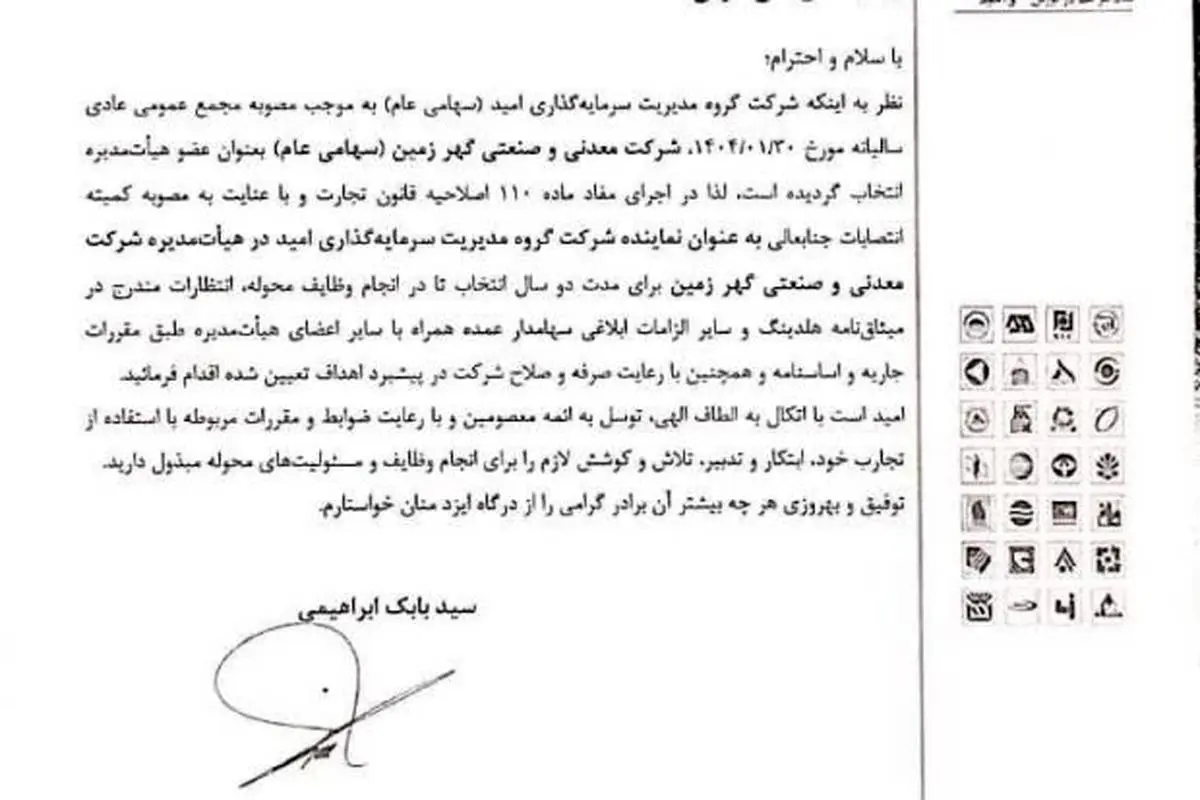 با سلام و احترام؛
نظر به اینکه شرکت گروه مدیریت سرمایه‌گذاری امید (سهامی عام) به موجب مصوبه مجمع عمومی عادی
سالیانه مورخ ۱۴۰۴/۰۱/۳۰، شرکت معدنی و صنعتی گهر زمین (سهامی عام) بعنوان عضو هیأت‌مدیره
انتخاب گردیده است، لذا در اجرای مفاد ماده ۱۱۰ اصلاحیه قانون تجارت و با عنایت به مصوبه کمیته
انتصابات جنابعالی به عنوان نماینده شرکت گروه مدیریت سرمایه‌گذاری امید در هیأت‌مدیره شرکت
معدنی و صنعتی گهر زمین برای مدت دو سال انتخاب تا در انجام وظایف محوله، انتظارات مندرج در
میثاق‌نامه هلدینگ و سایر الزامات ابلاغی سهامدار عمده همراه با سایر اعضای هیأت‌مدیره طبق مقررات
جاریه و اساسنامه و همچنین با رعایت صرفه و صلاح شرکت در پیشبرد اهداف تعیین شده اقدام فرمائید.
امید است با اتکال به الطاف الهی، توسل به ائمه معصومین و با رعایت ضوابط و مقررات مربوطه با استفاده از
تجارب خود، ابتکار و تدبیر، تلاش و کوشش لازم را برای انجام وظایف و مسئولیت‌های محوله مبذول دارید.
توفیق و بهروزی هر چه بیشتر آن برادر گرامی را از درگاه ایزد منان خواستارم.
سید بابک ابراهیمی